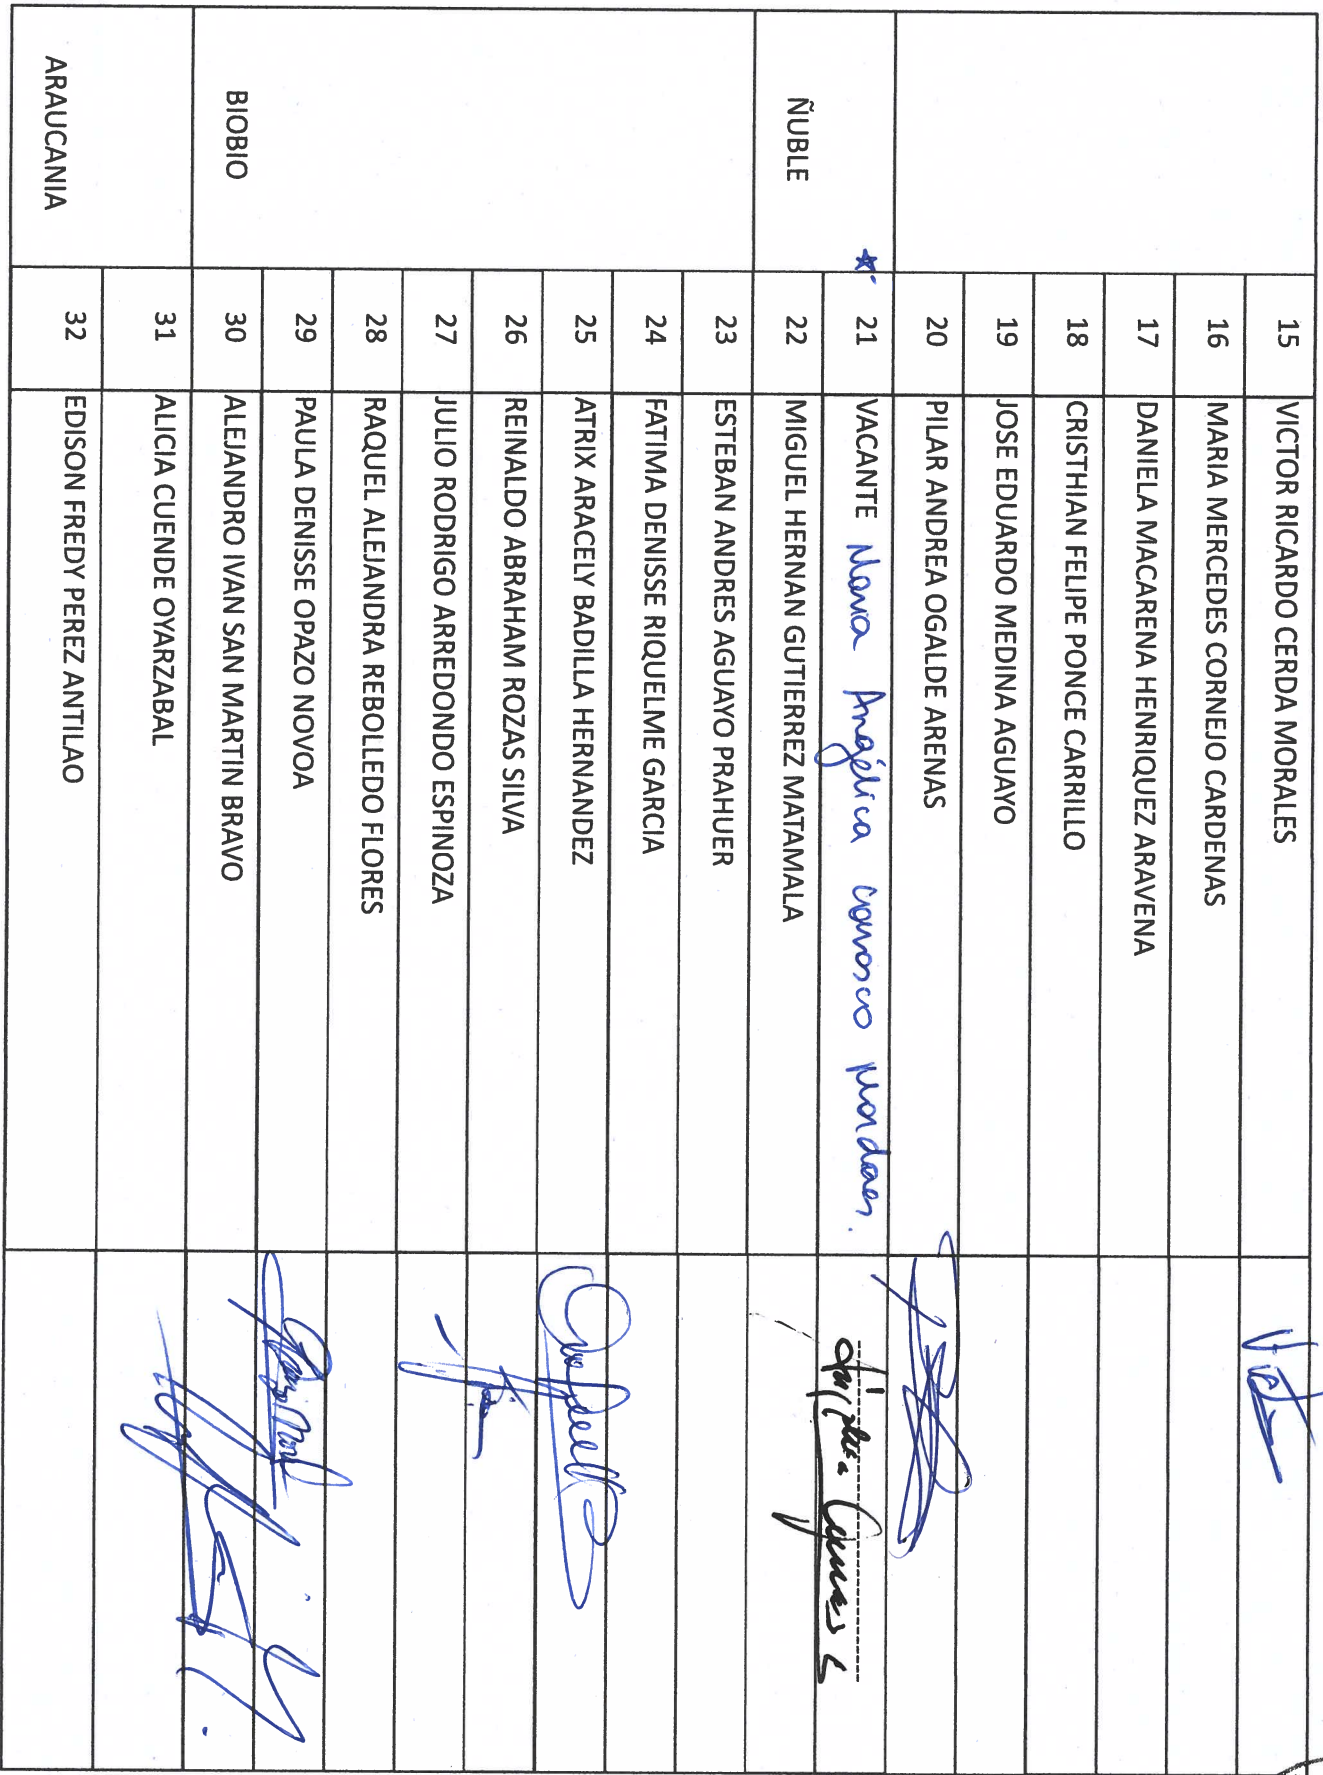 15 VICTOR RICARDO CERDA MORALES
16 MARIA MERCEDES CORNEJO CARDENAS
17 DANIELA MACARENA HENRIQUEZ ARAVENA
18 CRISTHIAN FELIPE PONCE CARRILLO
19 JOSE EDUARDO MEDINA AGUAYO
20 PILAR ANDREA OGALDE ARENAS
ÑUBLE
21 VACANTE Maria Angélica carrasco
22 MIGUEL HERNAN GUTIERREZ MATAMALA
BIOBIO
23 ESTEBAN ANDRES AGUAYO PRAHUER
24 FATIMA DENISSE RIQUELME GARCIA
25 ATRIX ARACELY BADILLA HERNANDEZ
26 REINALDO ABRAHAM ROZAS SILVA
27 JULIO RODRIGO ARREDONDO ESPINOZA
28 RAQUEL ALEJANDRA REBOLLEDO FLORES
29 PAULA DENISSE OPAZO NOVOA
30 ALEJANDRO IVAN SAN MARTIN BRAVO
ARAUCANIA
31 ALICIA CUENDE OYARZABAL
32 EDISON FREDY PEREZ ANTILAO